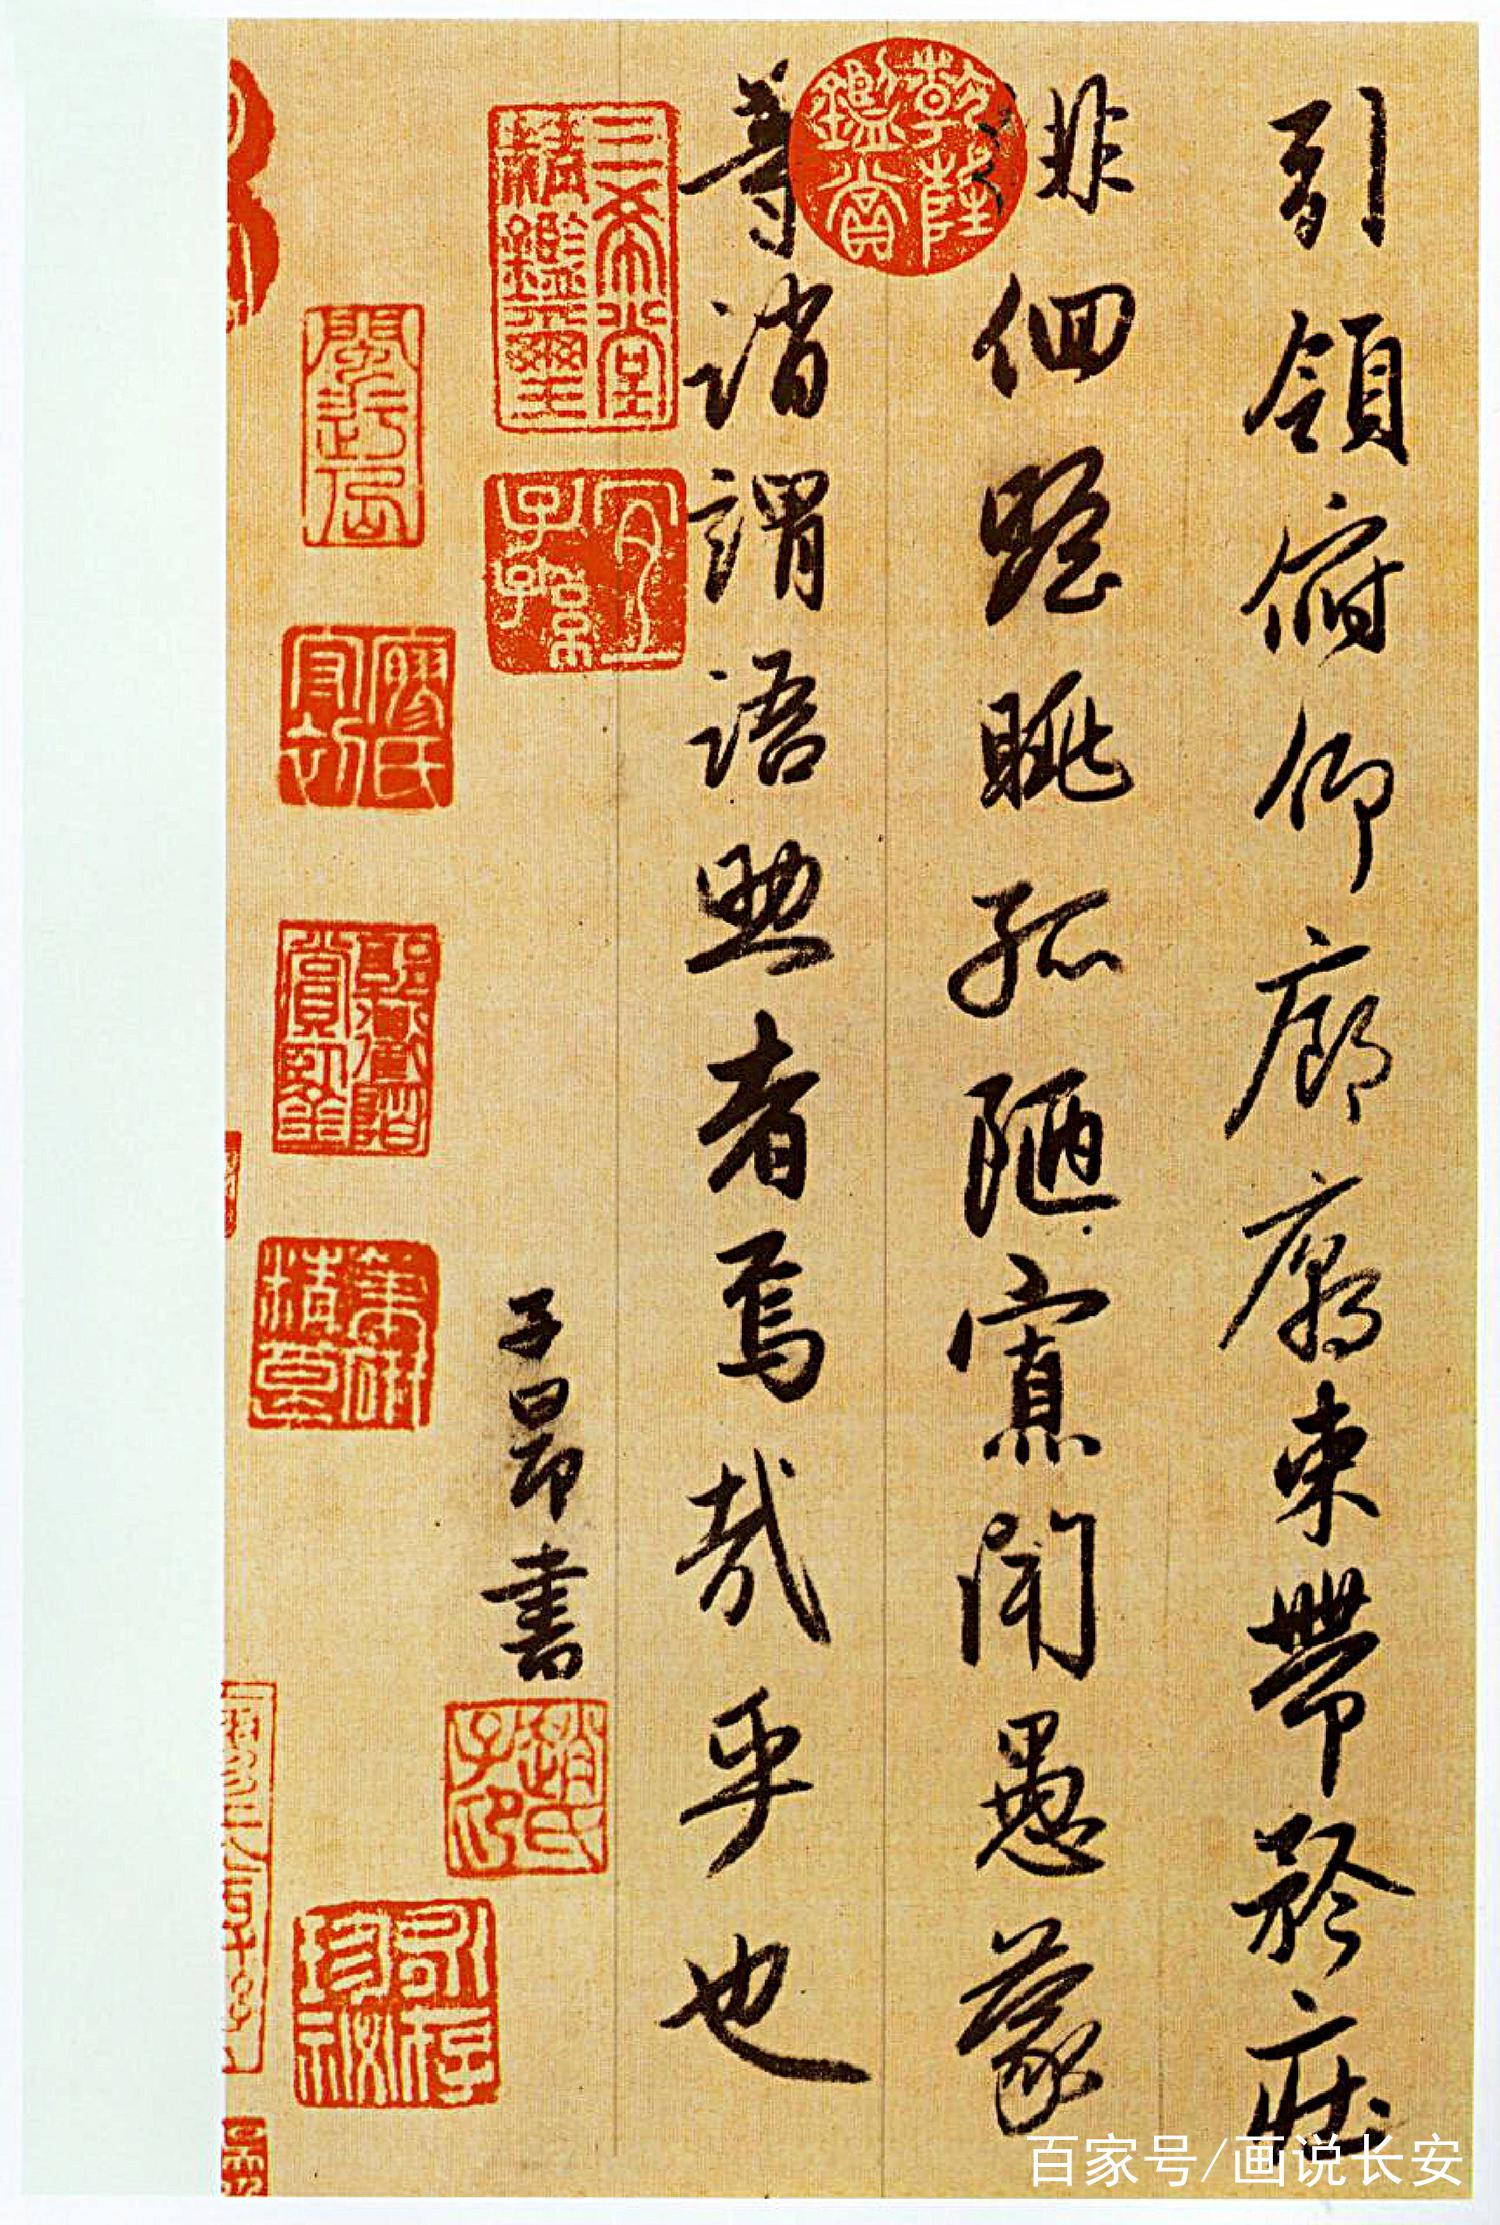 引領俯仰廊廟束帶矜莊
徘佪瞻眺孤陋寡聞愚蒙
等誚謂語助者焉哉乎也
子昂書
乾隆鑑賞
三希堂精鑑璽
宜子孫
趙氏子昂
筆研精良
百家号/画说长安